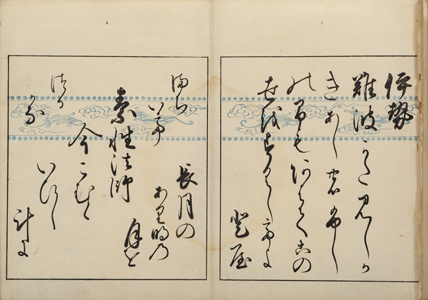 伊勢
難波かたみしか
きあしのふし
の間もあはてこの
世をすくしてよ
登屋
素性法師
今こむと
いひし
計に
長月の
あり明乃
月を
まち
いて
つる
かな